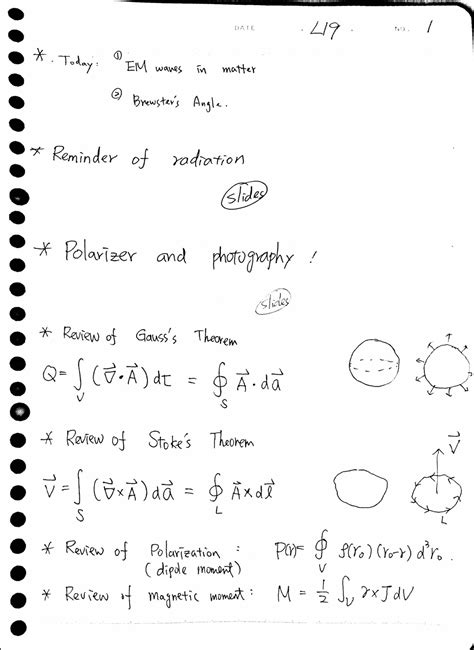 DATE L19 NO. 1
* Today: ① EM waves in matter
② Brewster's Angle.
* Reminder of radiation
slides
* Polarizer and photography!
slides
* Review of Gauss's Theorem
Q = ∫_V (∇⃗·A⃗) dτ = ∮_S A⃗·da⃗
* Review of Stoke's Theorem
V⃗ = ∫_S (∇⃗×A⃗) da⃗ = ∮_L A⃗×dl⃗
V⃗
L
* Review of Polarization : P(r) = ∮_V ρ(r₀)(r₀-r) d³r₀.
(dipole moment)
* Review of magnetic moment: M = 1/2 ∫_V r×J dV